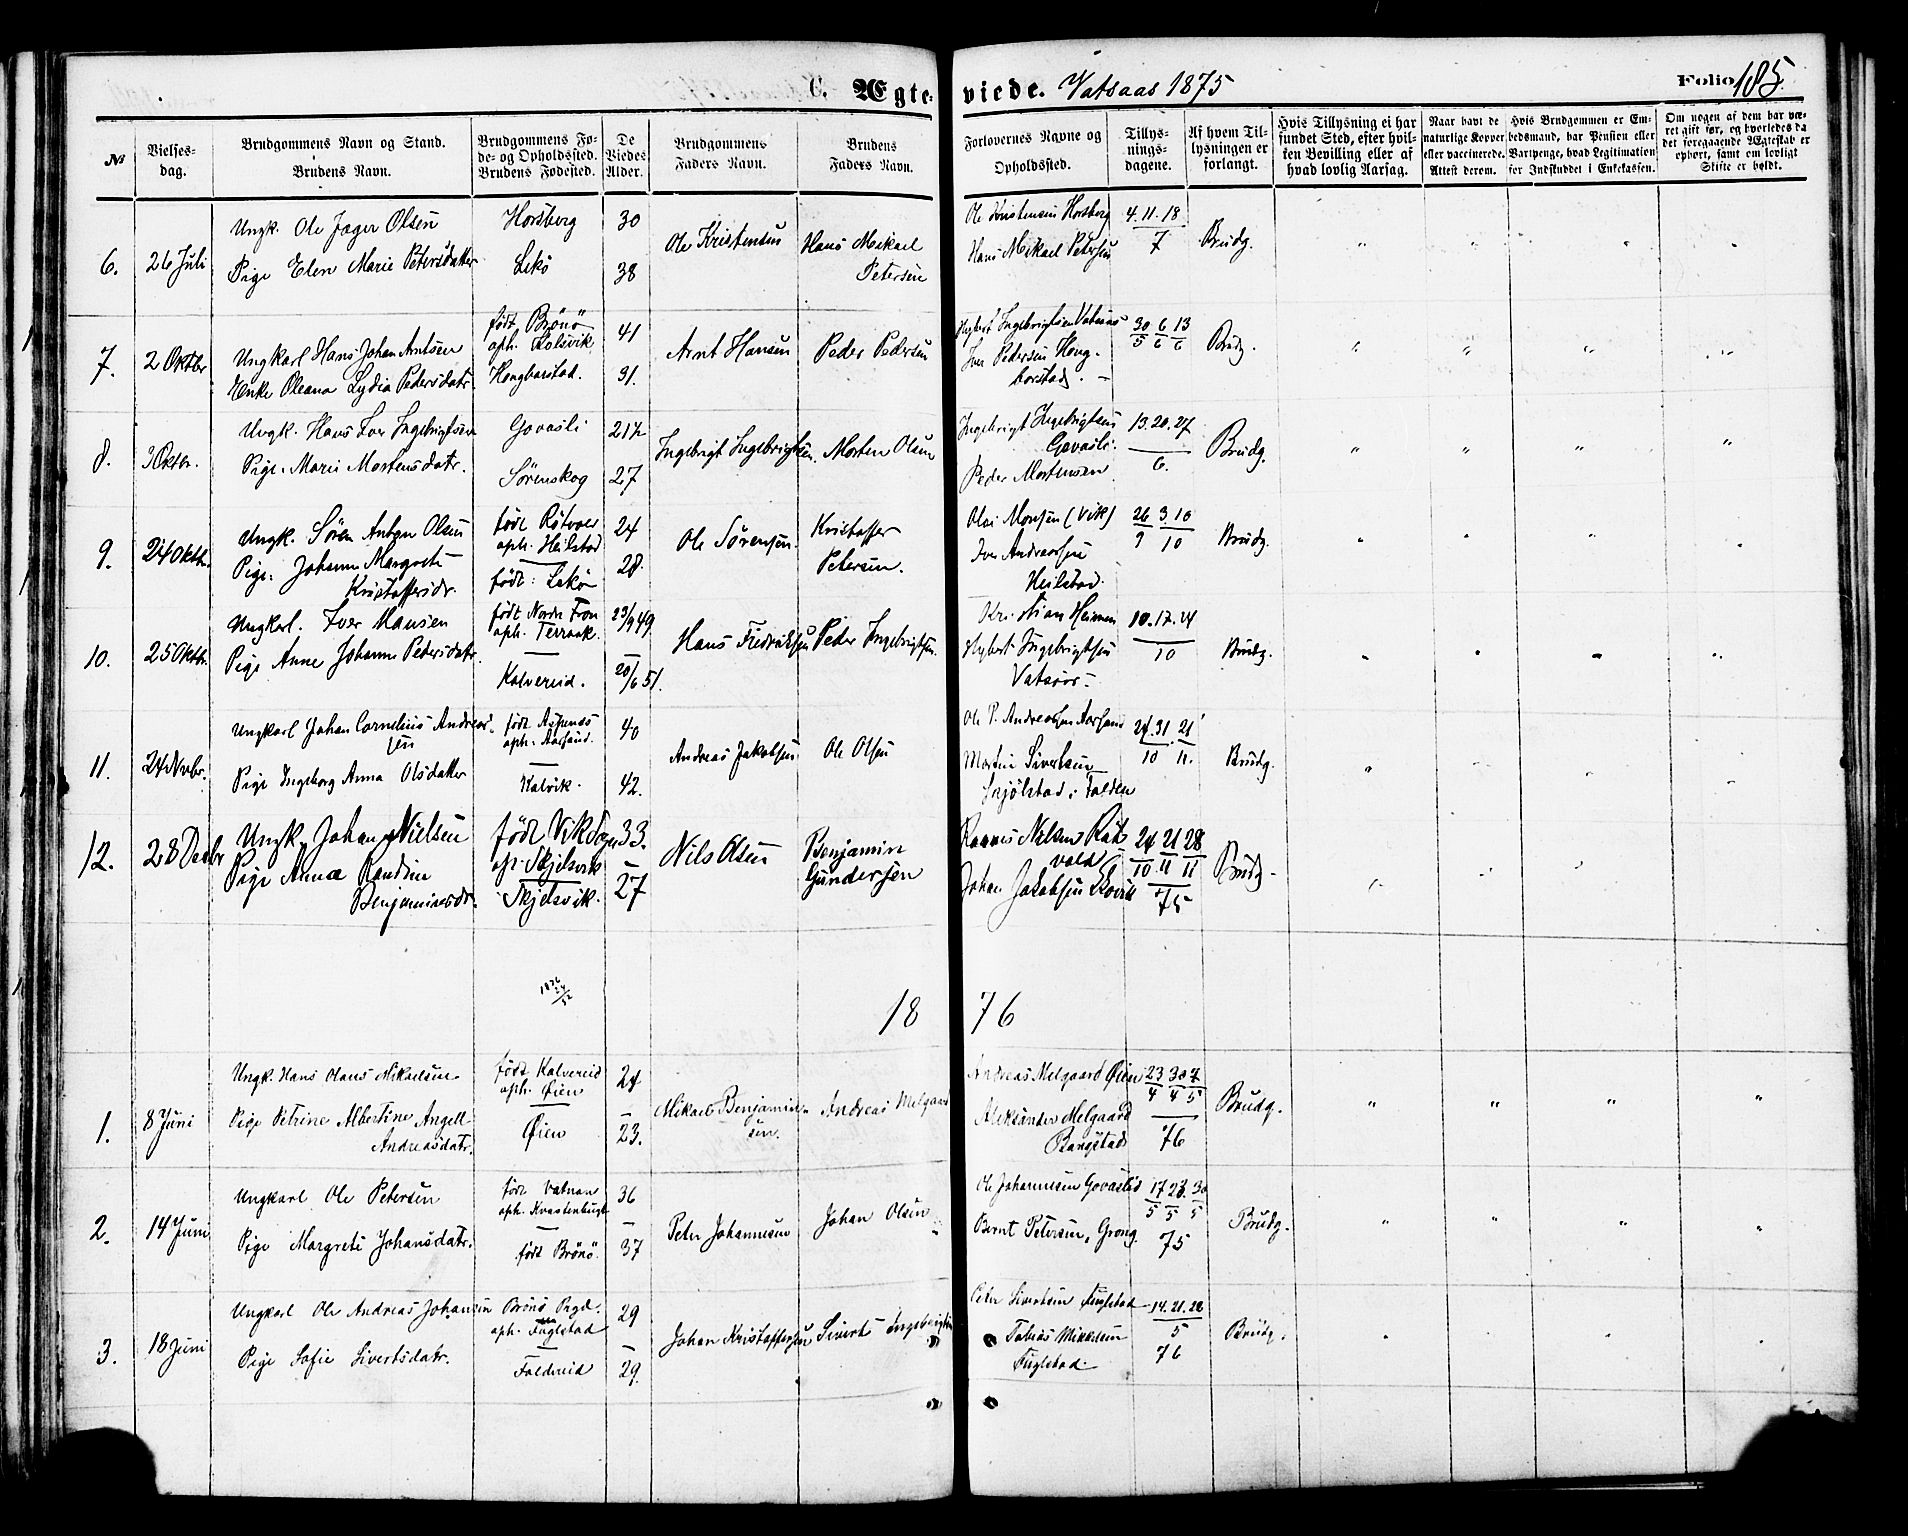 C. Ægte-viede. Vatsaas 1875
Folio 185.
№
Vielses-dag.
Brudgommens Navn og Stand.
Brudens Navn.
Brudgommens Fø-
de- og Opholdssted.
Brudens Fødested.
De
Viedes
Alder.
Brudgommens
Faders Navn.
Brudens
Faders Navn.
Forlovernes Navne og
Opholdssted.
Tillys-
nings-
dagene.
Af hvem Til-
lysningen er
forlangt.
Hvis Tillysning ei har
fundet Sted, efter hvil-
ken Bevilling eller af
hvad lovlig Aarsag.
Naar havt de
naturlige Kopper
eller vaccinerede.
Attest derom.
Hvis Brudgommen er Em-
bedsmand, har Pension eller
Vartpenge, hvad Legitimation
for Indskuddet i Enkekassen.
Om nogen af dem har væ-
ret gift før, og hvorledes da
det foregaaende Ægteskab er
ophørt, samt om lovligt
Skifte er holdt.
6. 26 Juli
Ungk. Ole Jager Olsen
Pige Elen Marie Petersdatter
Horsberg
Lekö
30
38
Ole Kristensen
Hans Mikael
Petersen
Ole Kristensen Horsberg
Hans Mikael Petersen
4. 11. 18
7
Brudg.
7. 2 Oktbr
Ungkarl Hans Johan Arntsen
Enke Oleana Lydia Pedersdatr.
født Brönö
oph. Kolsvik
Hongbarstad.
41
31.
Arnt Hansen
Peder Pedersen
Hybert Ingebrigtsen Vatsaas
Iver Pedersen Hong-
barstad.
30 6 13
5 6 6
Brudg.
8. 3 Oktbr.
Ungk. Hans Iver Ingebrigtsen
Pige. Marie Mortensdatr.
Govasli
Sörenskog
21½
27
Ingebrigt Ingebrigtsen.
Morten Olsen
Ingebrigt Ingebrigtsen
Govasli.
Peder Mortensen
13. 20. 27
6.
Brudg.
9. 24 Oktbr.
Ungk. Sören Anton Olsen
Pige. Johanna Margrete
Kristoffersdr.
født Rötvoer
oph. Heilstad
født: Lekö
24
28
Ole Sörensen.
Kristoffer
Petersen.
Oloi Monsen (Vik)
Iver Andreassen
Heilstad.
26 3. 10
9 10
Brudg.
10. 25 Oktbr.
Ungkarl. Iver Hansen
Pige Anne Johanna Pedersdatr.
født Nordr Fron
oph. Terraak.
Kalvereid.
23/9 49.
20/6 51.
Hans Fredriksen
Peder Ingebrigtsen.
Kristian Heimen
Hybert Ingebrigtsen
Vatsaas-
10. 17. 24
10
Brudg.
11. 24 Nvbr.
Ungkarl Johan Cornelius Andreas-
sen
Pige Ingeborg Anna Olsdatter
født Aspenæs
oph. Aarsand.
Kalvik.
40
42.
Andreas Jakobsen
Ole Olsen
Ole P. Andreassen Aarsand
Martin Sivertsen
Frjölstad i Folden
24. 31. 21
10 11.
Brudg.
12. 28 Decbr
Ungk. Johan Nielsen
Pige Anna Randine
Benjaminsdr.
født Vik Sogn
op. Skjelsvik
Skjelsvik.
33.
27
Nils Olsen
Benjamin
Gundersen
Rasmus Nilsen Röt-
vold
Johan Jakobsen Skovik
24 21 28
10 11 11
75
Brudg.
1876
1876
1. 8 Juni
Ungk. Hans Olaus Mikaelsen
Pige Petrine Albertine Angell
Andreasdatr.
født Kalvereid
oph. Øien
Øien
24
23.
Mikael Benjamin-
sen.
Andreas Melgaard
Andreas Melgaard Øien
Aleksander Melgaard
Bangstad
23 30 7
4 4 5
76
Brudg.
2. 14 Juni
Ungkarl Ole Petersen
Pige Margrete Johansdatr.
født Vatnan
oph. Kvastenbugt
født Brönö.
36
37
Peter Johannesen
Johan Olsen
Ole Johannesen Govaslid
Bernt Petersen, Grong.
17 23. 30
5 5 5
75
Brudg.
3. 18 Juni
Ungkarl Ole Andreas Johansen
Pige Sofie Sivertsdatr.
Brönö Prgd.
oph. Fuglstad
Foldereid
29
29.
Johan Kristoffersen
Sivert Ingebrigtsen
Peter Sivertsen Fuglstad
Tobias Mikkelsen
Fuglstad.
14. 21. 28
5
76
Brudg.